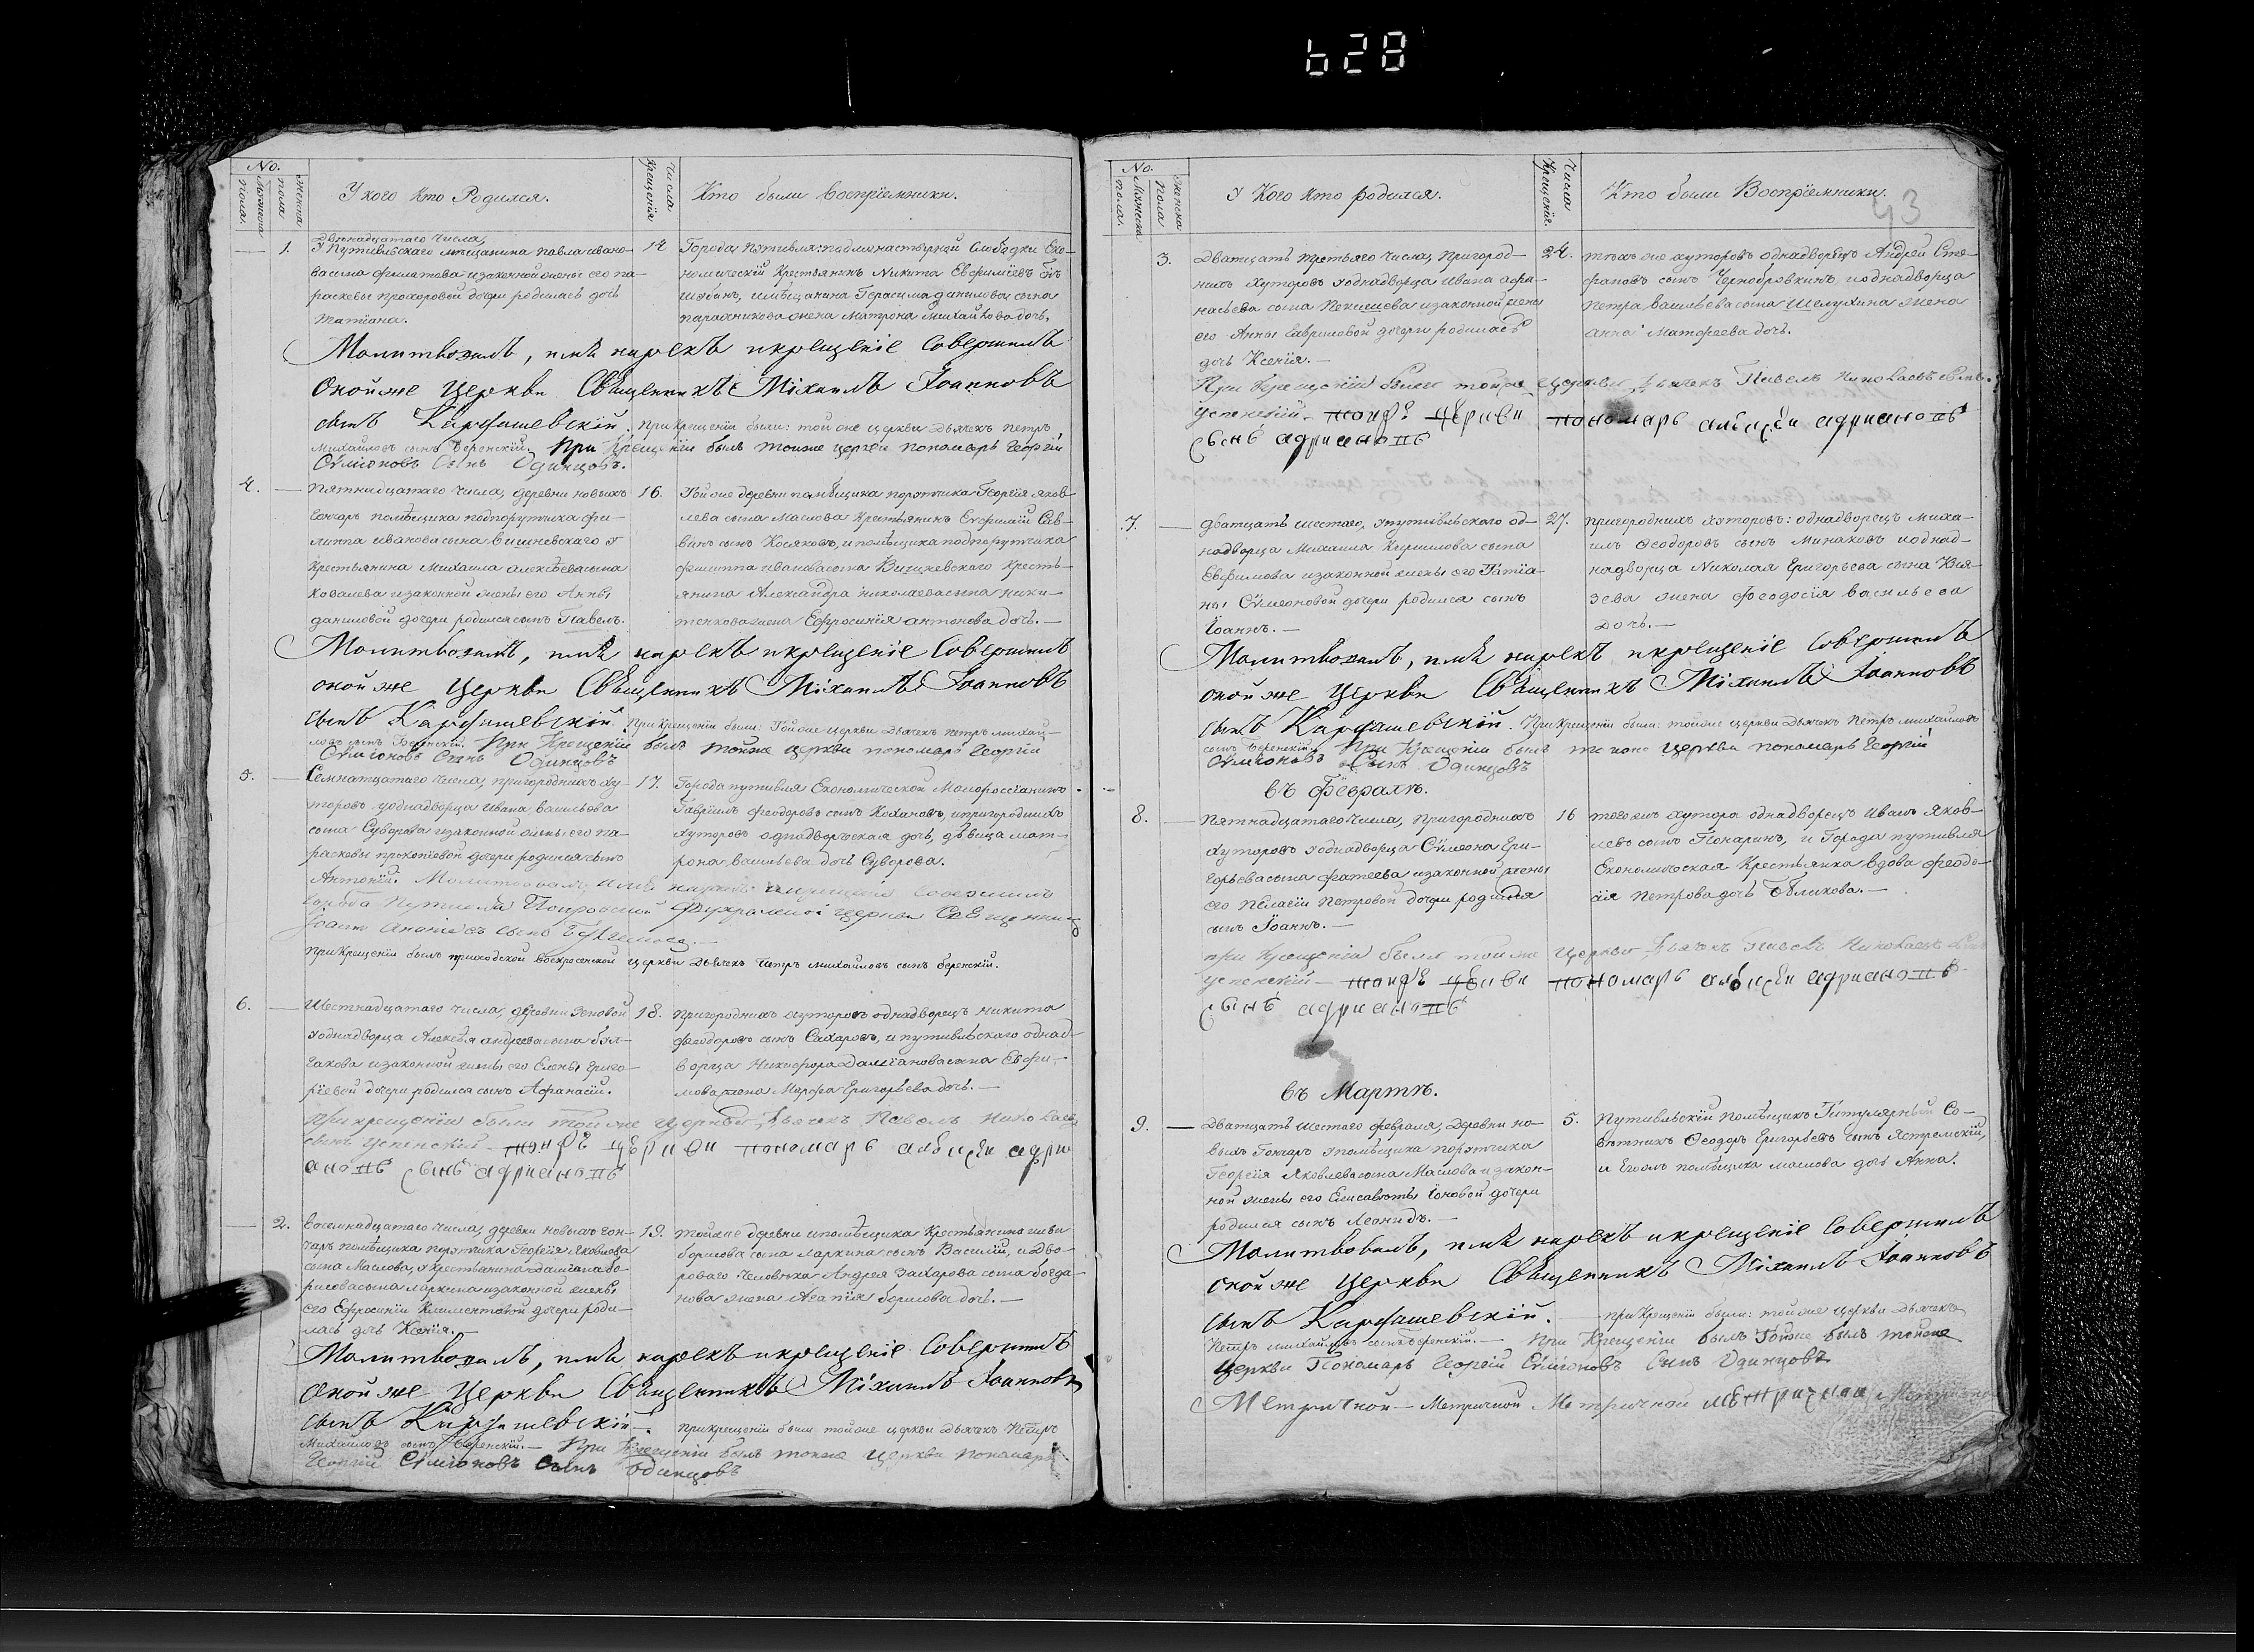 628
43
No.
мужеска пола.
женска пола
У кого кто Родился.
Числа Крещенія
Кто были Воспріемники.
1.
Двенадцатаго числа,
У Путивльскаго мѣщанина Павла Ивано-
ва сына Филатова изаконной жены его Па-
расковьи Прохоровой дочери родилась дочь
Татіана.
12
Города Путивля: подмонастырной Слободки Эко-
номическій Крестьянинъ Никита Евфиміевъ сынъ
имѣщанина Герасима Данилова сына
жена Матрона Михайлова дочь.
Молитвовалъ, имя нарекъ икрещеніе Совершилъ
оной же Церкви Священникъ Міхаилъ Іоанновъ
сынъ Карташевскій. При крещеніи были: той же церкви Дьячекъ Петръ
Михайловъ сынъ Беренскій. При Крещеніи былъ тоиже церкви пономарь Георгій
Сѵмеоновъ Сынъ Одинцовъ.
4.
Пятнадцатаго числа, деревни новыхъ
Гончаръ помѣщика подпорутчика Фи-
липпа Иванова сына Вишневскаго у
Крестьянина Михаила Алексѣева сына
Ковалева изаконной жены его Анны
Даниловой дочери родился сынъ Павелъ.
16.
Той же деревни помѣщика порутчика Георгія Яков-
лева сына Маслова Крестьянинъ Сав-
винъ сынъ Косяковъ, и помѣщика подпорутчика
Филиппа Иванова сына Вишневскаго кресть-
янина Александра Николаева сына Ники-
тенкова жена Ефросинія Антонова дочь.
Молитвовалъ, имя нарекъ икрещеніе Совершилъ
оной же Церкви Священникъ Міхаилъ Іоанновъ
сынъ Карташевскій. При Крещеніи были: Той же церкви Дьячекъ Петръ Михай-
ловъ сынъ Беренскій. При Крещеніи былъ тойже церкви пономарь Георгій
Сѵмеоновъ Сынъ Одинцовъ
5.
Семнатцатаго числа, пригородныхъ ху-
торовъ уоднадворца Ивана Васильева
сына Суворова изаконной жены его Па-
расковьи Прокопіевой дочери родился сынъ
Антоній.
17.
Города путивля Економической Малороссіянинъ
Гавріилъ Феодоровъ сынъ Кохановъ, ипригородныхъ
хуторовъ однадворческая дочь, дѣвица Мат-
рона Васильева дочь Суворова.
Молитвовалъ имя нарекъ икрещеніе совершилъ
города Путивля Церкви Священникъ
При Крещеніи былъ приходской Воскресенской церкви Дьячекъ Петръ Михайловъ сынъ Беренскій.
6.
Шестнадцатаго числа, деревни
уоднадворца Алексѣя Андреева сына Бул-
гакова изаконной жены его Елены Григо-
ріевой дочери родился сынъ Афанасій.
18.
Пригородныхъ хуторовъ однадворецъ Никита
Феодоровъ сынъ Сахаровъ, и путивльскаго однад-
ворца Никифора Даміанова сына Евфи-
мова жена Марфа Григорьева дочь.
При крещеніи были тойже Церкви Дьячекъ Павелъ Николаевъ
сынъ Успенскій тойже церкви пономарь алексѣи адри
ановъ сынъ адриановъ
2.
Восемнадцатаго числа, деревни новыхъ Гон-
чаръ помѣщика порутчика Георгія Яковлева
сына Маслова, укрестьянина Даміана Бо-
рисова сына Ларкина изаконной жены
его Ефросиніи Климентовой дочери роди-
лась дочь Ксенія.
19.
тойже деревни ипомѣщика Крестьянина
Борисова сына Ларкина сынъ Василій, и Дво-
роваго человѣка Андрея Захарова сына Богда-
нова жена Агапія Борисова дочь.
Молитвовалъ, имя нарекъ икрещеніе Совершилъ
оной же Церкви Священникъ Міхаилъ Іоанновъ
сынъ Карташевскій. При крещеніи были тойже церкви Дьячекъ Петръ
Михайловъ сынъ Беренскій. При Крещеніи былъ тойже Церкви Пономарь
Георгій Сѵмеоновъ Сынъ Одинцовъ
No.
Мужеска пола.
женска пола
У Кого кто родился.
Числа Крещеніе.
Кто были Воспріемники.
3.
Дватцать третьяго числа, Пригород-
ныхъ Хуторовъ уоднадворца Ивана Афа-
насьева сына изаконной жены
его Анны Гавриловой дочери родилась
дочь Ксенія.
24.
тѣхъ же хуторовъ однадворецъ Андрей Сте-
фановъ сынъ Чернобровкинъ иоднадворца
Петра Васильева сына Шелухина жена
Анна Матфеева дочь.
При Крещеніи были тойже Церкви Дьячекъ Павелъ Николаевъ сынъ
Успенскій тойже церкви пономарь алексѣи адриановъ
сынъ адриановъ
7.
Дватцать шестаго, упутивльскаго од-
надворца Михаила Кирилова сына
Евфимова изаконной жены его Татіа-
ны Сѵмеоновой дочери родился сынъ
Іоаннъ.
27.
пригородныхъ хуторовъ: однадворецъ Миха-
илъ Феодоровъ сынъ Минаковъ иоднад-
надворца Николая Григорьева сына Кня-
зева жена Феодосія Васильева
дочь.
Молитвовалъ, имя нарекъ икрещеніе Совершилъ
оной же Церкви Священникъ Міхаилъ Іоанновъ
сынъ Карташевскій. При Крещеніи были: тойже церкви Дьячекъ Петръ Михайловъ
сынъ Беренскій. При Крещеніи былъ тоиже церкви пономарь Георгій
Сѵмеоновъ Сынъ Одинцовъ
въ Февралѣ.
8.
Пятнадцатаго числа, Пригородныхъ
Хуторовъ уоднадворца Сѵмеона Гри-
горьева сына Фатеева изаконной жены
его Пелагіи Петровой дочери родился
сынъ Іоаннъ.
16
того жъ хутора однадворецъ Иванъ Яков-
левъ сынъ Понаринъ, и Города путивля
Економическая Крестьянка вдова Феодо-
сія Петрова дочь Бѣликова.
При крещеніи были тойже Церкви Дьячекъ Павелъ Николаевъ сынъ
Успенскій тойже церкви пономарь алексѣи адриановъ
сынъ адриановъ
въ Мартѣ.
9.
Дватцать шестаго февраля, Деревни но-
выхъ Гончаръ упомѣщика порутчика
Георгія Яковлева сына Маслова изакон-
ной жены его Елисаветы Іоновой дочери
родился сынъ Леонидъ.
5.
Путивльскій помѣщикъ Титулярный Со-
вѣтникъ Феодоръ Григорьевъ сынъ Ястремскій,
и Егожъ помѣщика Маслова дочь Анна.
Молитвовалъ, имя нарекъ икрещеніе Совершилъ
оной же Церкви Священникъ Міхаилъ Іоанновъ
сынъ Карташевскій. При Крещеніи были: тойже церкви Дьячекъ
Петръ Михайловъ сынъ Беренскій. При Крещеніи былъ Тойже былъ тойже
Церкви Пономарь Георгій Сѵмеоновъ Сынъ Одинцовъ
Метричной Метричной Метричной метричнои Метричной